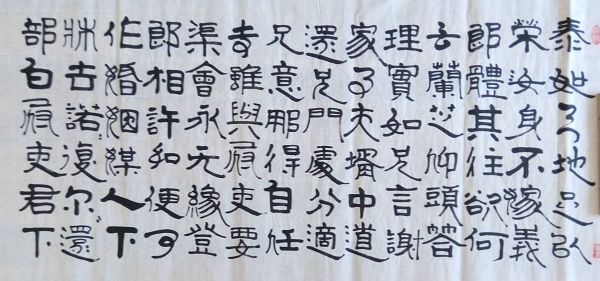 泰如天地足以
榮汝身不嫁義
郎體其往欲何
云蘭芝仰頭答
理實如兄言謝
家事夫壻中道
還兄門處分適
兄意那得自任
專雖與府吏要
渠會永无緣登
郎相許和便可
作婚姻媒人下
牀去諾〻復尔〻還
部白府吏君下